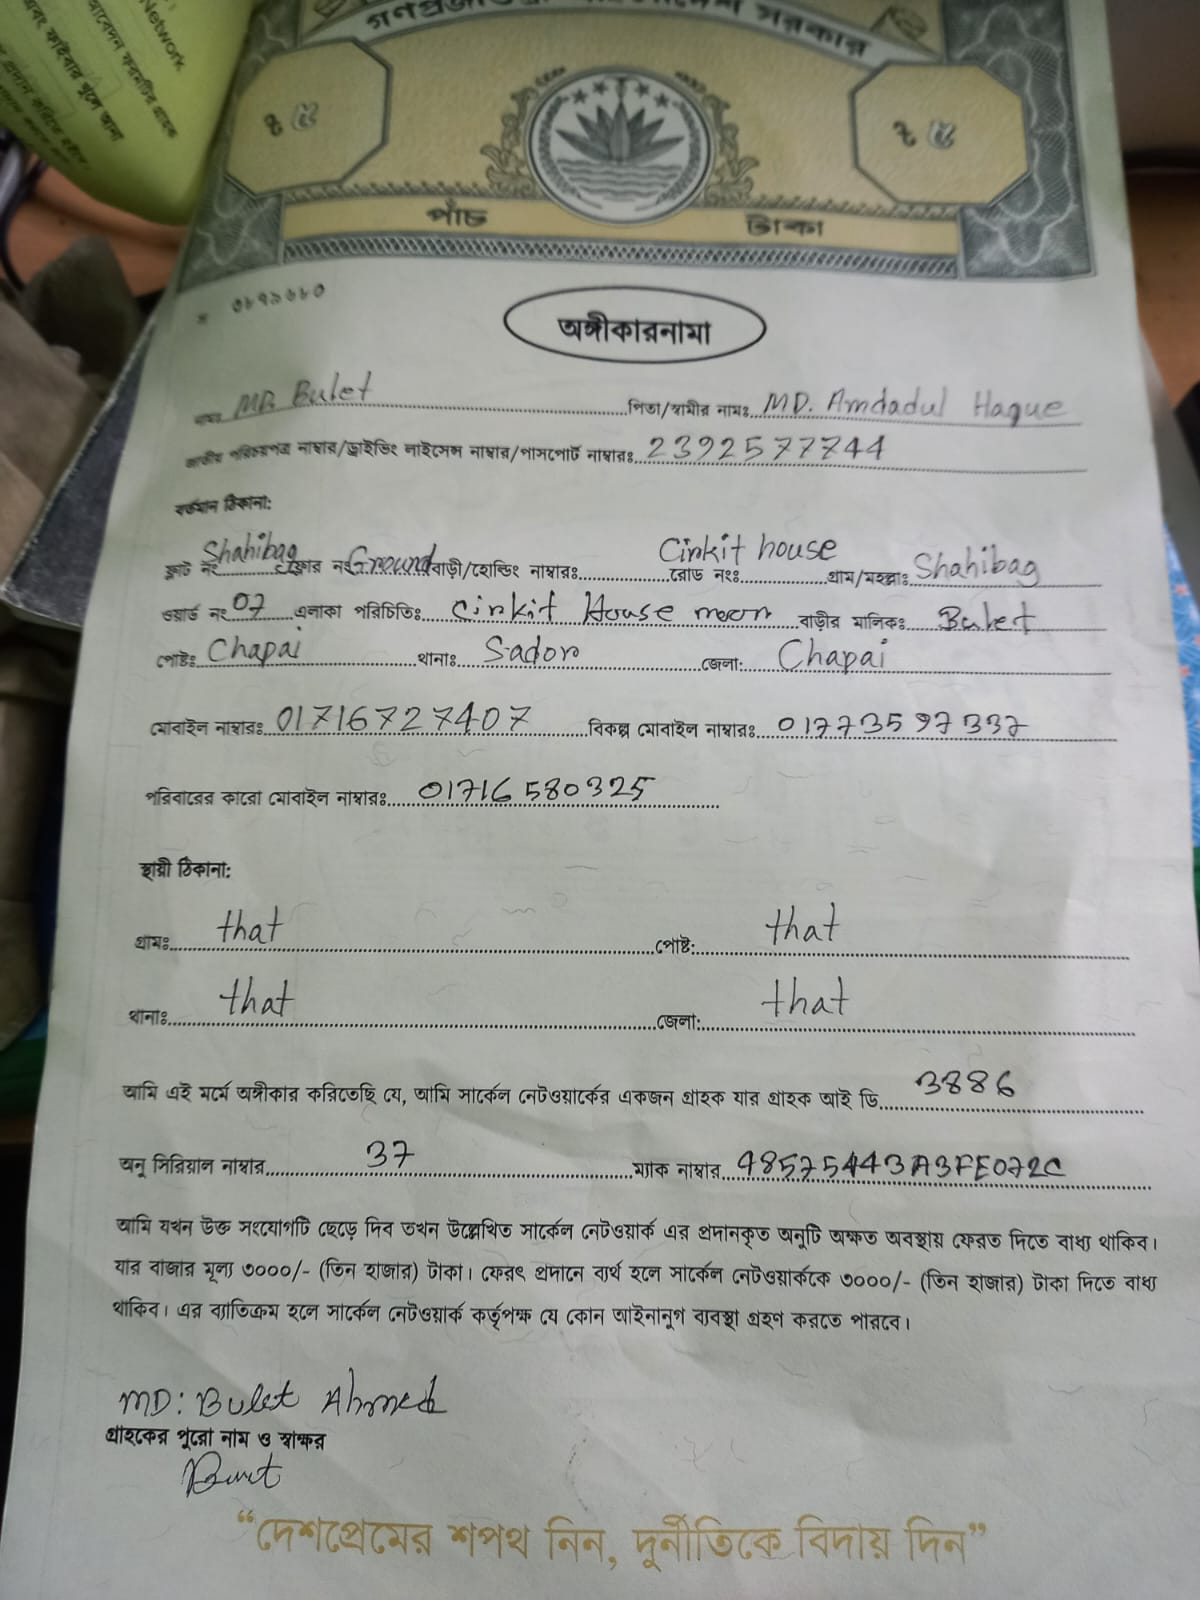 Network
গণপ্রজাতন্ত্রী বাংলাদেশ সরকার
৫ ৫
পাঁচ টাকা
৩৮৭৯৬৮৩
অঙ্গীকারনামা
নামঃ MD. Bulet পিতা/স্বামীর নামঃ MD. Amdadul Haque
জাতীয় পরিচয়পত্র নাম্বার/ড্রাইভিং লাইসেন্স নাম্বার/পাসপোর্ট নাম্বারঃ 2392577744
বর্তমান ঠিকানা:
ফ্লাট নং Shahibag ফ্লোর নং Ground বাড়ী/হোল্ডিং নাম্বারঃ রোড নংঃ Cirkit house গ্রাম/মহল্লাঃ Shahibag
ওয়ার্ড নং 07 এলাকা পরিচিতিঃ Cirkit House moor বাড়ীর মালিকঃ Bulet
পোষ্টঃ Chapai থানাঃ Sador জেলা: Chapai
মোবাইল নাম্বারঃ 01716727407 বিকল্প মোবাইল নাম্বারঃ 01773597337
পরিবারের কারো মোবাইল নাম্বারঃ 01716580325
স্থায়ী ঠিকানা:
গ্রামঃ that পোষ্ট: that
থানাঃ that জেলা: that
আমি এই মর্মে অঙ্গীকার করিতেছি যে, আমি সার্কেল নেটওয়ার্কের একজন গ্রাহক যার গ্রাহক আই ডি 3886
অনু সিরিয়াল নাম্বার 37 ম্যাক নাম্বার 48575443A3FE072C
আমি যখন উক্ত সংযোগটি ছেড়ে দিব তখন উল্লেখিত সার্কেল নেটওয়ার্ক এর প্রদানকৃত অনুটি অক্ষত অবস্থায় ফেরত দিতে বাধ্য থাকিব।
যার বাজার মূল্য ৩০০০/- (তিন হাজার) টাকা। ফেরৎ প্রদানে ব্যর্থ হলে সার্কেল নেটওয়ার্ককে ৩০০০/- (তিন হাজার) টাকা দিতে বাধ্য
থাকিব। এর ব্যাতিক্রম হলে সার্কেল নেটওয়ার্ক কর্তৃপক্ষ যে কোন আইনানুগ ব্যবস্থা গ্রহণ করতে পারবে।
MD: Bulet Ahmed
গ্রাহকের পুরো নাম ও স্বাক্ষর
“দেশপ্রেমের শপথ নিন, দুর্নীতিকে বিদায় দিন”